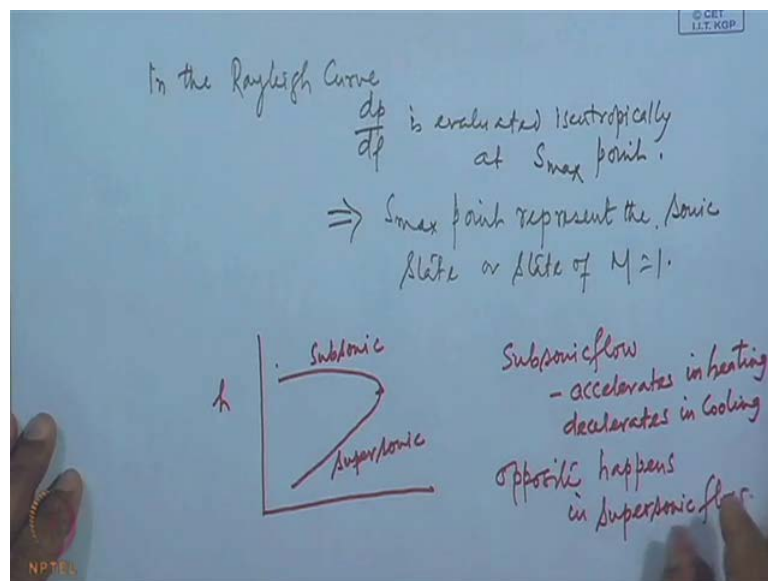 © CET
I.I.T. KGP
In the Rayleigh Curve
dp
dρ
is evaluated isentropically
at Smax point.
⇒ Smax point represent the sonic
state or state of M=1.
h
Subsonic
Supersonic
Subsonic flow
- accelerates in heating
decelerates in cooling
Opposite happens
in supersonic flow.
NPTEL